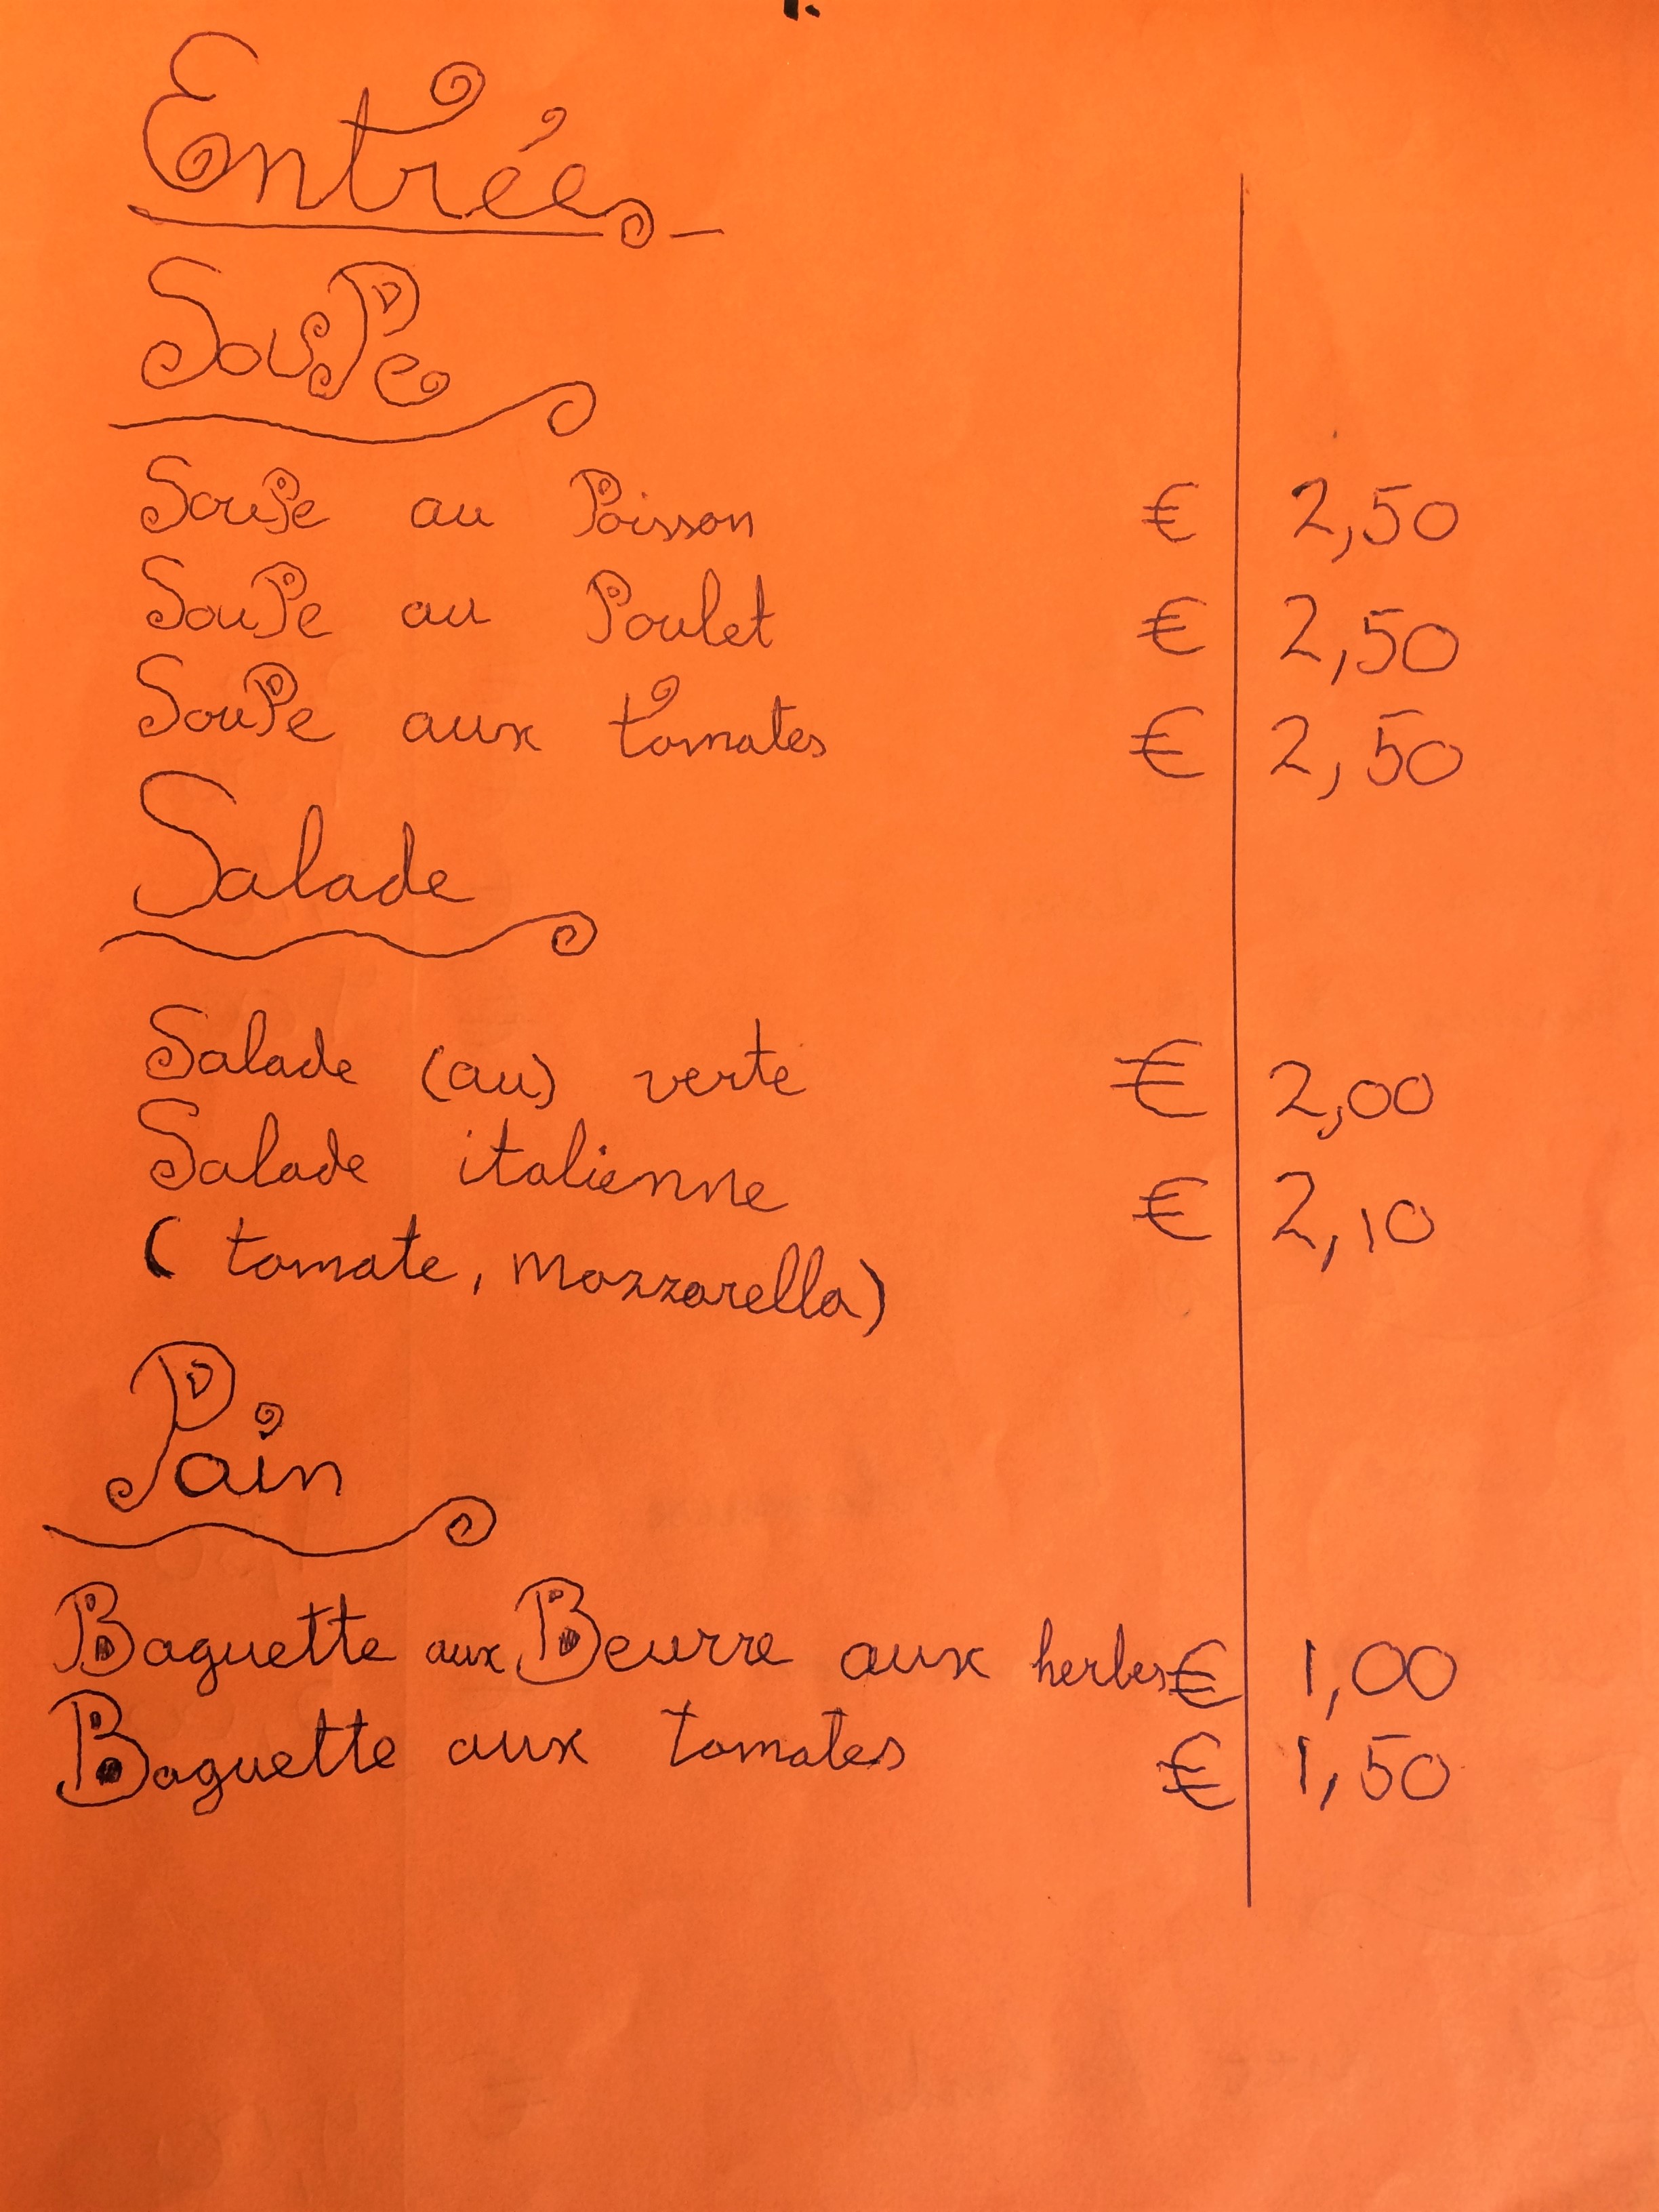 Entrées
SouPe
SouPe au Poisson € 2,50
SouPe au Poulet € 2,50
SouPe aux tomates € 2,50
Salade
Salade (au) verte € 2,00
Salade italienne € 2,10
(tomate, mozzarella)
Pain
Baguette aux Beurre aux herbes € 1,00
Baguette aux tomates € 1,50